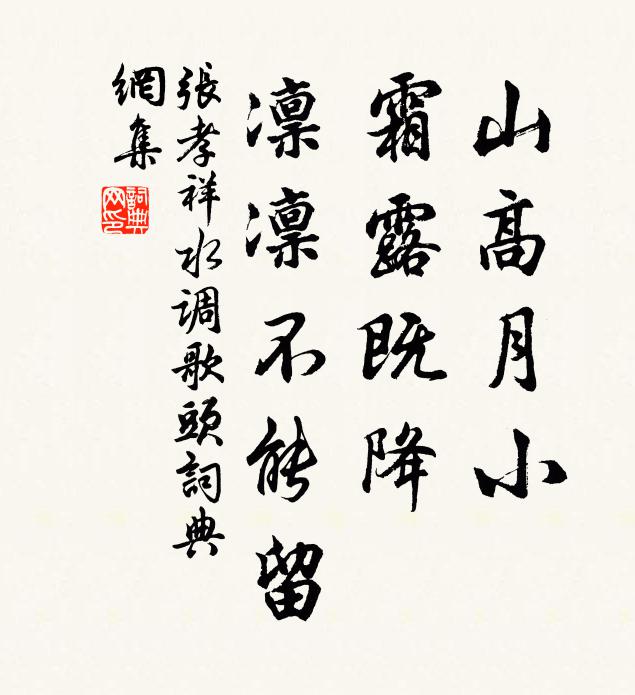 山高月小
霜露既降
凛凛不能留
張孝祥水調歌頭詞典
網集
詞典
网印